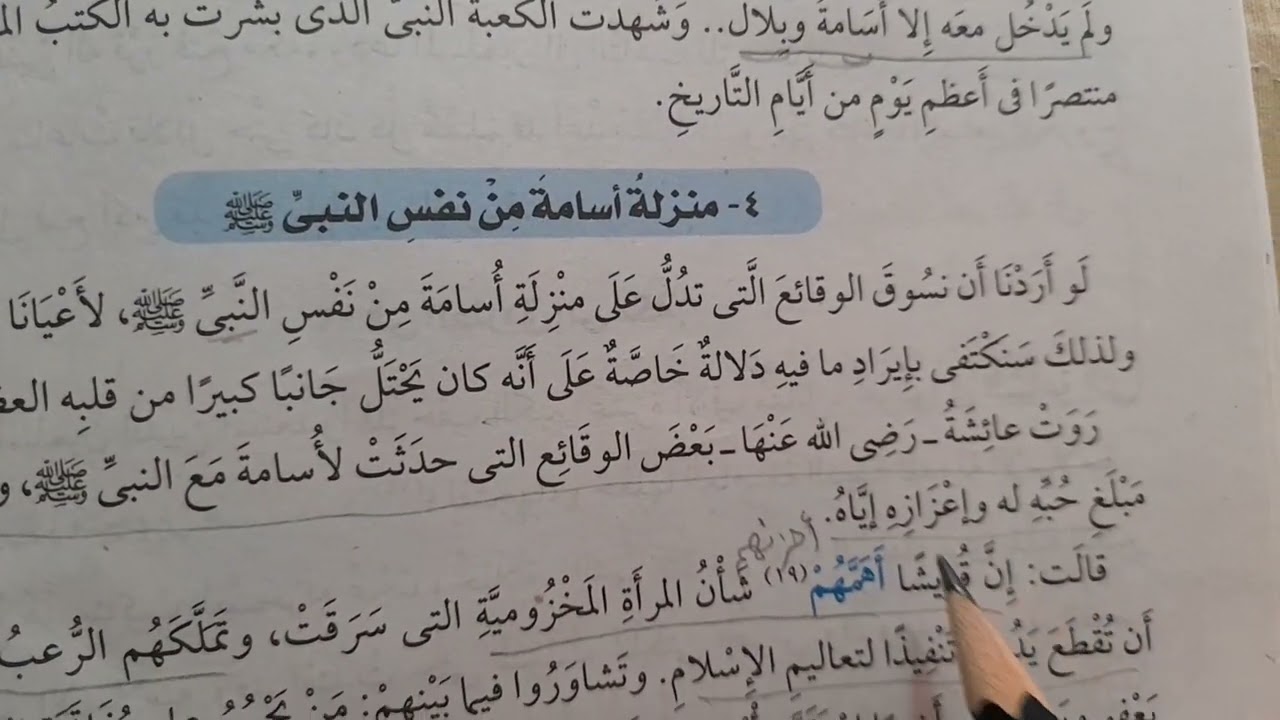 ولَم يَدْخُل معَه إِلا أسَامةُ وبِلال.. وَشَهِدت الكعبةُ النبىَّ الذى بَشَّرت به الكتبُ
منتصرًا فى أَعظمِ يَوْمٍ من أَيَّامِ التَّاريخِ.
٤- منزلةُ أسامةَ مِنْ نفْسِ النبىِّ ﷺ
لَو أَرَدْنَا أَن نسُوقَ الوقائعَ الَّتى تدُلُّ عَلَى منْزِلَةِ أُسامَةَ مِنْ نَفْسِ النَّبىِّ ﷺ، لأَعْيَانَا
ولذلكَ سَنكْتَفى بإِيرَادِ ما فيهِ دَلالةٌ خَاصَّةٌ عَلَى أَنَّه كان يَحْتَلُّ جَانبًا كبيرًا من قلبِه
رَوَتْ عائِشَةُ ـ رَضِى الله عَنْهَا ـ بَعْضَ الوقَائِع التى حدَثَتْ لأُسامةَ مَعَ النبىِّ ﷺ، و
مَبْلَغِ حُبِّهِ له وإعْزَازِهِ إيَّاهُ.
أحزنهم
قالَت: إِنَّ قُرَيشًا أَهَمَّهُمْ (١٩) شَأْنُ المرأَةِ المَخْزُوميَّةِ التى سَرَقَتْ، وتَمَلَّكَهُم الرُّعبُ
أَن تُقْطَعَ تَنْفِيذًا لتعاليمِ الإسْلامِ. وتَشاوَرُوا فيما بَيْنهمْ: مَنْ